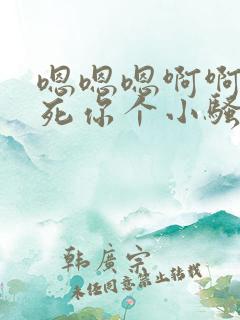 嗯嗯嗯啊啊
死你个小骚
韩廣宗
未经同意禁止转载